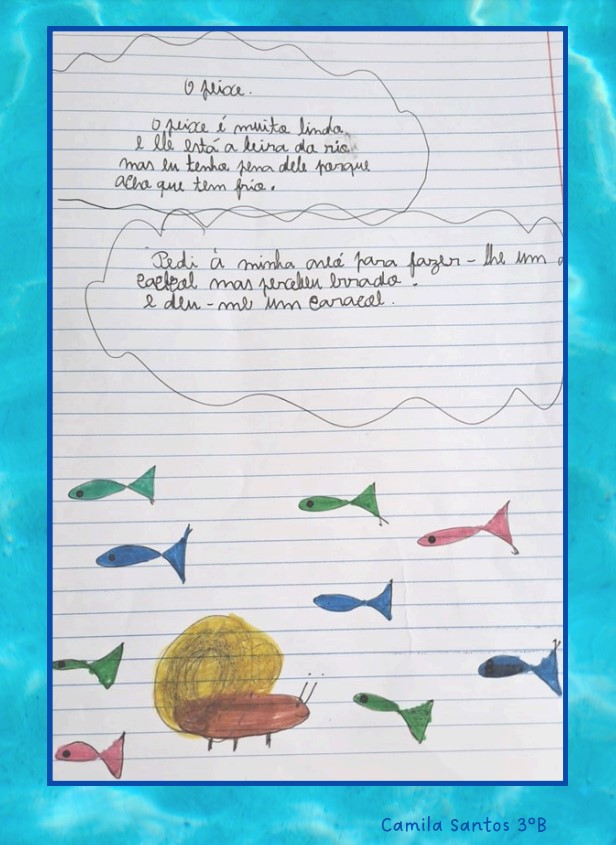 O peixe.
O peixe é muito lindo
e ele está a beira do rio
mas eu tenho pena dele porque
acho que tem frio.
Pedi à minha avó para fazer-lhe um
mas percebeu errado.
e deu-me um caracol.
Camila Santos 3ºB